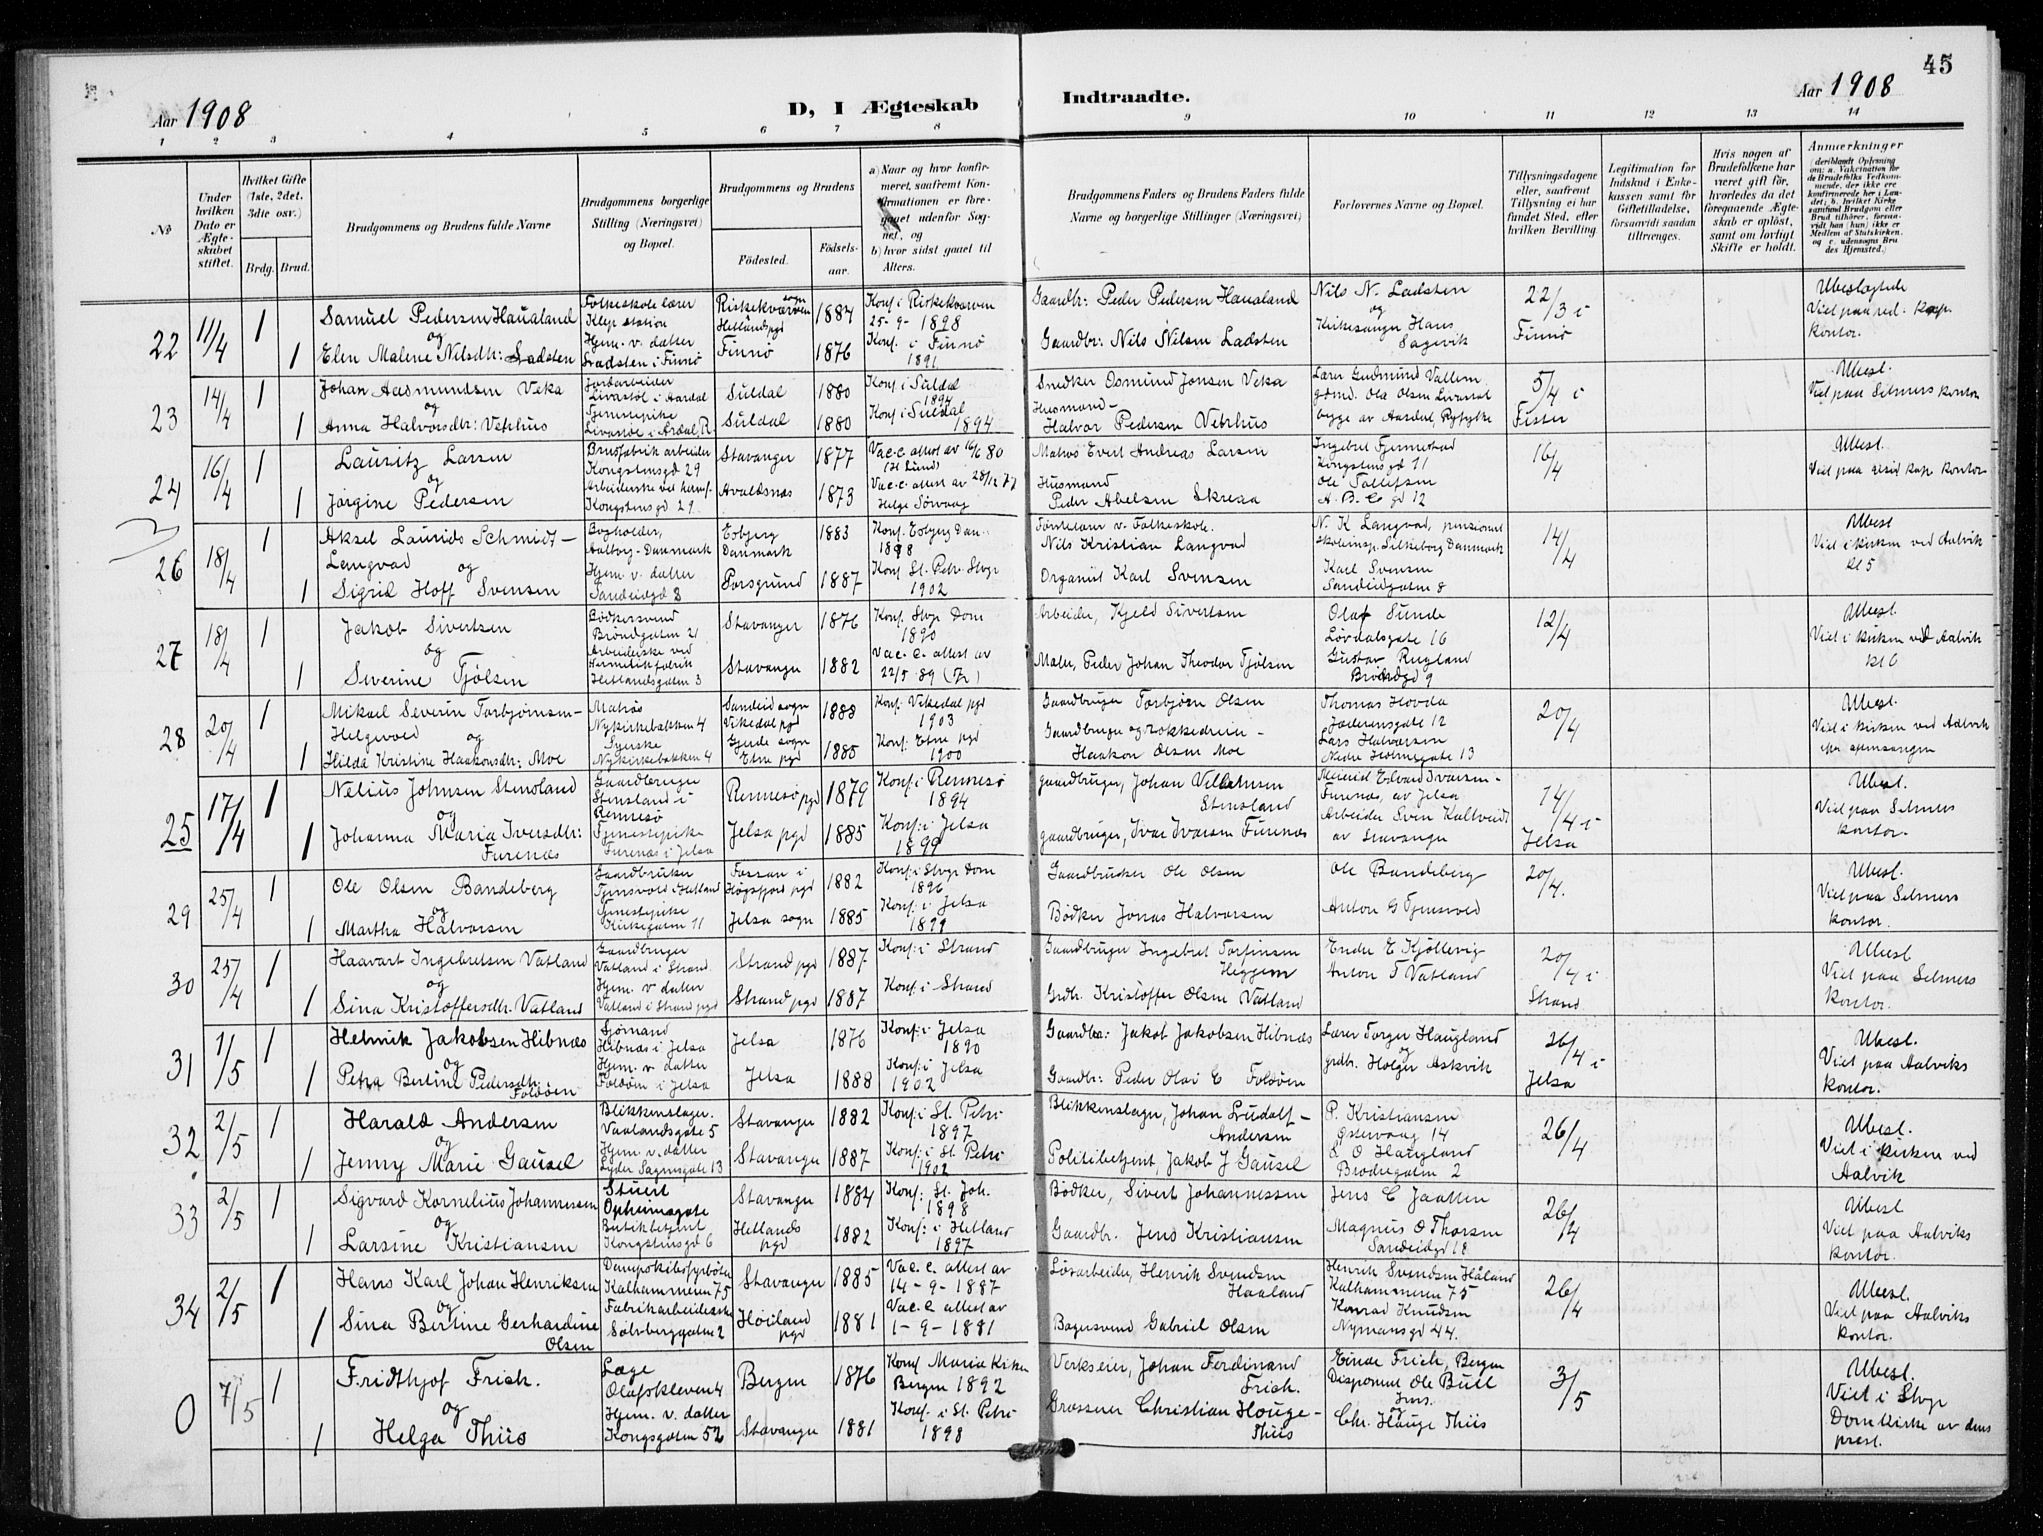 45
Aar 1908
D, I Ægteskab Indtraadte.
Aar 1908
1 2 3 4 5 6 7 8 9 10 11 12 13 14
No
Under hvilken Dato er Ægteskabet stiftet.
Hvilket Gifte (1ste, 2det, 3dte osv.)
Brdg. Brud.
Brudgommens og Brudens fulde Navne
Brudgommens borgerlige Stilling (Næringsvei) og Bopæl.
Brudgommens og Brudens
Fødested. Fødselsaar.
a) Naar og hvor konfirmeret, saafremt Konfirmationen er foregaaet udenfor Sognet, og
b) hvor sidst gaaet til Alters.
Brudgommens Faders og Brudens Faders fulde Navne og borgerlige Stillinger (Næringsvei)
Forlovernes Navne og Bopæl.
Tillysningsdagene eller, saafremt Tillysning ei har fundet Sted, efter hvilken Bevilling.
Legitimation for Indskud i Enkekassen samt for Giftetilladelse, forsaavidt saadan tiltrænges.
Hvis nogen af Brudefolkene har været gift før, hvorledes da det foregaaende Ægteskab er opløst, samt om lovligt Skifte er holdt.
Anmærkninger
(deriblandt Oplysning om: a. Vakcination for de Brudefolks Vedkommende, der ikke ere konfirmerede her i Landet; b. hvilket Kirkesamfund Brudgom eller Brud tilhører, forsaavidt han (hun) ikke er Medlem af Statskirken, og c. udensogns Brudes Hjemsted.)
22 11/4 1 Samuel Pedersen Haualand Folkeskolelærer Klep station Riskekværven sogn Hetlands pgd 1884 Konf. i Riskekværven 25-9-1898 Gaardbr: Peder Pedersen Haualand Nils N. Ladsten og 22/3 i Finnø Ubeslægtede
1 og Elen Malene Nilsdtr: Ladsten Hjem. v. datter Ladsten i Finnø Finnø 1876 Konf. i Finnø 1891 Gaardbr: Nils Nilsen Ladsten Kirkesanger Hans Sagevik Viet paa red. kap. kontor.
23 14/4 1 Johan Aasmundsen Veka Jordarbeider Livastøl i Aardal Suldal 1880 Konf. i Suldal 1894 Snedker Osmund Jonsen Veka Lærer Gudmund Vallem 5/4 i Fister Ubesl.
1 og Anna Halvorsdtr: Vetrhus Tjenestepike Livastøl i Årdal, R. Suldal 1880 Konf. i Suldal 1894 Husmand Halvor Pedersen Vetrhus gdmd. Ola Olsen Livastøl begge av Aardal, Ryfylke Viet paa Selmers kontor
24 16/4 1 Lauritz Larsen Brusfabrik arbeider Kongstensgd 29 Stavanger 1877 Vac.c. attest av 16/6 80 (H Lund) Matros Evert Andreas Larsen Ingebret Tjemestad Kongstensgd 11 16/4 Ubesl.
1 og Jørgine Pedersen Arbeiderske ved hermf. Kongstensgd 29 Avaldsnes 1873 Vac.c. attest av 28/12 77 Helge Sørvaag Husmand Peder Abelsen Skreaa Ole Tollefsen A. B. C gd 12 Viet paa resid kap kontor
26 18/4 1 Aksel Laurids Schmidt-Langvad Bogholder, Aalborg - Danmark Esbjerg Danmark 1883 Konf. Esbjerg Dan: 1898 Førstelærer v. Folkeskole. Nils Kristian Langvad N. K Langvad, pensionert skoleinsp. Silkeborg Danmark 14/4 Ubesl
1 og Sigrid Hoff Svensen Hjem. v. datter Sandeidgd 8 Porsgrund 1887 Konf St. Petri Stvgr 1902 Organist Karl Svensen Karl Svensen Sandeidgaten 8 Viet i kirken ved Aalvik kl 5
27 18/4 1 Jakob Sivertsen Bødkersvend Brøndgaten 21 Stavanger 1876 Konf. Stvgr Dom 1890 Arbeider, Kjeld Sivertsen Olaf Sunde Løvdalsgate 16 12/4 Ubesl.
1 og Severine Tjølsen Arbeiderske ved Hermetikfabrik Hetlandsgaten 3 Stavanger 1882 Vac. c. attest av 22/5 89 Maler, Peder Johan Theodor Tjølsen Gustav Rugland Brøndgd 9 Viet i kirken ved Aalvik kl 6
28 20/4 1 Mikael Severin Torbjørnsen-Helgevold Matros Nykirkebakken 4 Sandeid sogn Vikedal pgd 1883 Konf. Vikedal pgd 1903 Gaardbruger Torbjørn Olsen Thomas Hovda Jæderensgate 12 20/4 Ubesl.
1 og Hilda Kristine Haakonsdtr: Moe Syerske Nykirkebakken 4 Gjerde sogn Etne pgd 1885 Konf. Etne pgd 1900 Gaardbruger og rokkedreier - Haakon Olsen Moe Lars Halvorsen Nedre Holmegate 13 Viet i kirken ved Aalvik efter aftensangen
25 17/4 1 Nelius Johnsen Stensland Gaardbruger Stensland i Rennesø Rennesø pgd 1879 Konf. i Rennesø 1894 gaardbruger, Johan Villumsen Stensland Meierist Edvard Iversen - Furenæs, av Jelsa 14/4 i Jelsa Ubesl.
1 og Johanna Maria Iversdtr: Furenæs Tjenestepike Furenæs i Jelsa Jelsa pgd 1885 Konf: i Jelsa 1899 gaardbruger, Ivar Ivarsen Furenæs Arbeider Sven Kaltveidt av Stavanger Viet paa Selmers kontor.
29 25/4 1 Ole Olsen Bandeberg Gaardbruker Tjensvold i Hetland Fossan i Høgsfjord pgd 1882 Konf: i Stvgr Dom 1896 Gaardbruker Ole Olsen Ole Bandeberg 20/4. Ubesl.
1 og Martha Halvorsen Tjenestepike Kirkegaten 11 Jelsa sogn 1885 Konf: i Jelsa 1899 Bødker Jonas Halvorsen Anton G Tjensvold Viet paa Selmers kontor.
30 25/4 1 Haavart Ingebretsen Vatland Gaardbruger Vatland i Strand Strand pgd 1887 Konf: i Strand Gaardbruger Ingebret Torfinsen Heggem Endre E Kjøllevig 20/4 i Strand Ubesl
1 og Sina Kristoffersdtr. Vatland Hjem. v datter Vatland i Strand pgd Strand pgd 1887 Konf. i Strand Grdbr. Kristoffer Olsen Vatland Anton T Vatland Viet paa Selmers kontor.
31 1/5 1 Helmik Jakobsen Hibnæs Sjømand Hibnæs i Jelsa Jelsa 1876 Konf: i Jelsa 1890 Gaardbr: Jakob Jakobsen Hibnæs Lærer Torger Haugland og 26/4 i Jelsa Ubesl.
1 og Petra Bertine Pedersdtr. Foldøen Hjem. v. datter Foldøen i Jelsa Jelsa 1888 Konf: i Jelsa 1902 Gaardbr: Peder Olai E Foldøen grdbr. Holger Askvik Viet paa Aalviks kontor.
32 2/5 1 Harald Andersen Blikkenslager. Vaalandsgate 5 Stavanger 1882 Konf: i St. Petri 1897 Blikkenslager, Johan Ludolf - Andersen P. Kristiansen Østervaag 14 26/4 Ubesl.
1 og Jenny Marie Gausel Hjem. v. datter Lyder Sagensgate 13 Stavanger 1887 Konf: i St. Petri 1902 Politibetjent, Jakob J Gausel L O Haugland Brødregaten 2 Viet i kirken ved Aalvik
33 2/5 1 Sigvard Kornelius Johannessen Stuert Opheimsgate Stavanger 1884 Konf: St. Joh. 1898 Bødker, Sivert Johannessen Jens C Jaatten 26/4 Ubesl
1 og Larsine Kristiansen Butikbetjent Kongstensgd 6 Hetlands pgd 1882 Konf: i Hetland 1897 Gaardbr. Jens Kristiansen Magnus O Thorsen Sandeidgd 18 Viet paa Aalviks kontor.
34 2/5 1 Hans Karl Johan Henriksen Dampskibsfyrbøter Kalhammeren 75 Stavanger 1885 Vac. c. attest av 14-9-1887 Løsarbeider, Henrik Svendsen Haaland Henrik Svendsen Håland Kalhammeren 75 26/4 Ubesl.
1 og Sina Bertine Gerhardine Olsen Fabrikarbeiderske Sølvberggaten 2 Høiland pgd 1881 Vac. c attest av 1-9-1881 Bagersvend Gabriel Olsen Konrad Knudsen Nymansgd 44. Viet paa Aalviks kontor.
0 7/5 1 Fridthjof Frich. Læge Olafskleven 4 Bergen 1876 Konf Maria Kirke Bergen 1892 Verkseier, Johan Ferdinand Frich. Einar Frich, Bergen 3/5 Ubesl.
1 og Helga Thiis Hjem. v. datter Kongsgaten 52 Stavanger 1881 Konf. i St. Petri 1898 Grosserer Christian Houge-Thiis Disponent Ole Bull og Chr. Houge Thiis Viet i Stvgr Domkirke av dens prest.